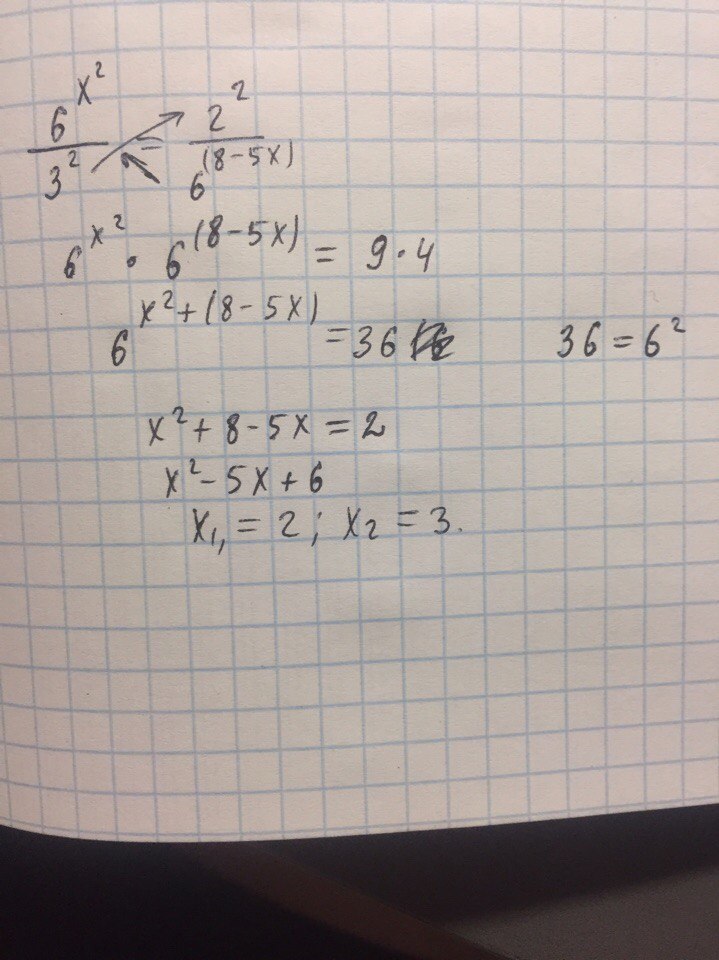 6^{x^2}/3^2 = 2^2/6^{(8-5x)}
6^{x^2} · 6^{(8-5x)} = 9·4
6^{x^2+(8-5x)} = 36 36 = 6^2
x^2+8-5x=2
x^2-5x+6
x_1, = 2; x_2 = 3.